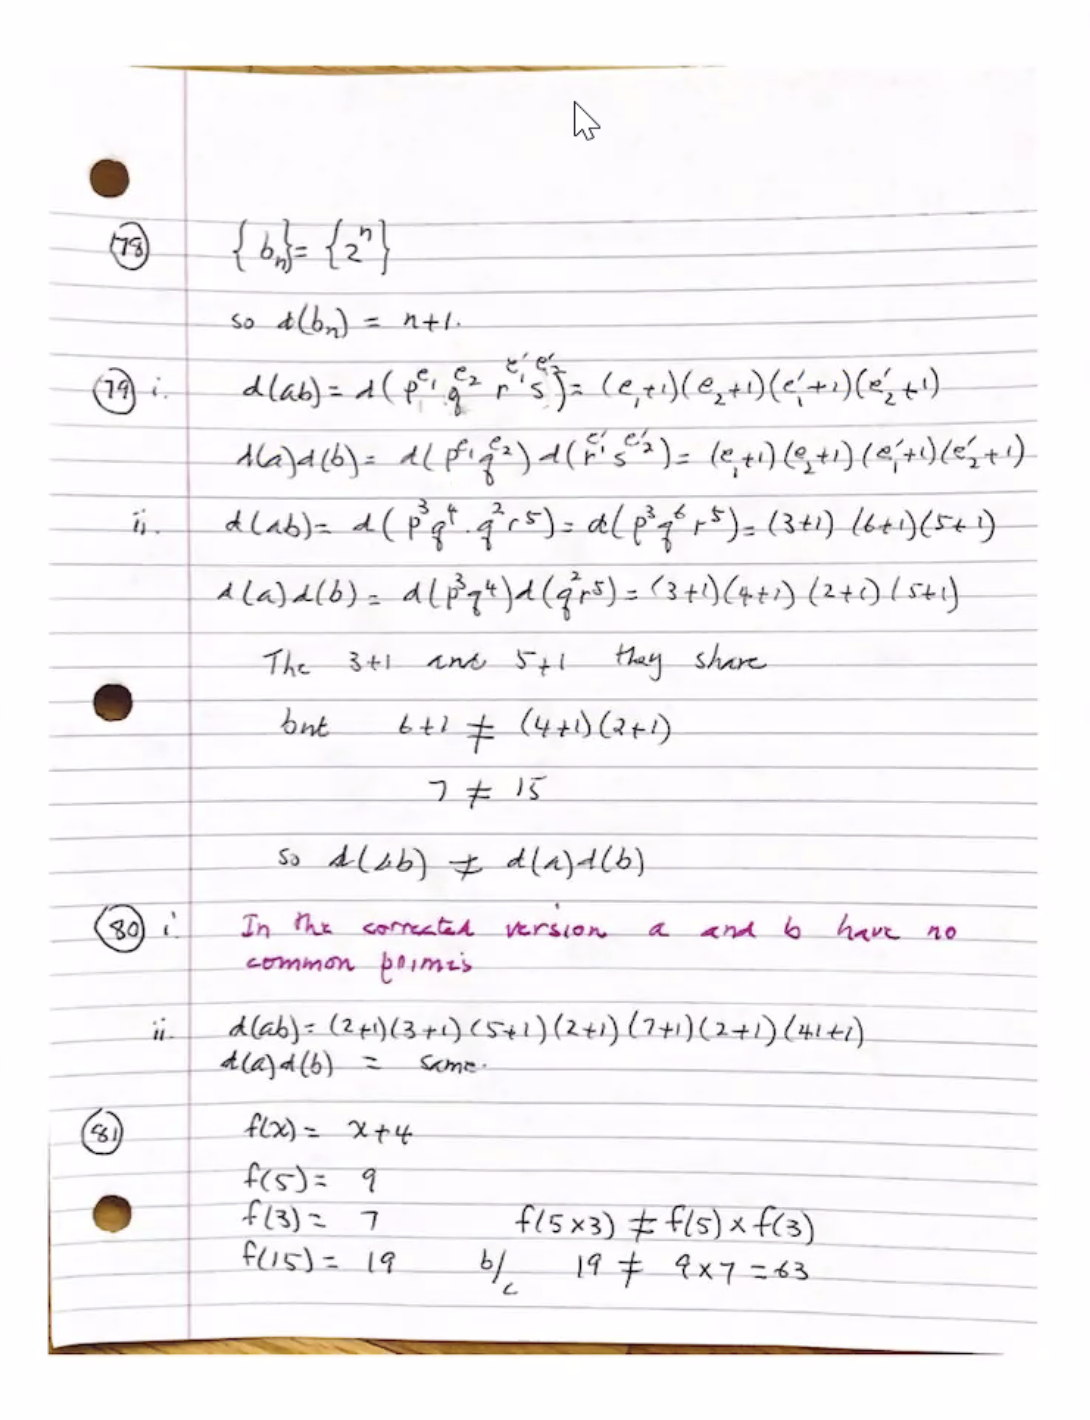 78 {b_n} = {2^n}
so d(b_n) = n+1.
79 i. d(ab) = d(p^e₁ q^e₂ r^e'₁ s^e'₂) = (e₁+1)(e₂+1)(e'₁+1)(e'₂+1)
d(a)d(b) = d(p^e₁ q^e₂) d(r^e'₁ s^e'₂) = (e₁+1)(e₂+1)(e'₁+1)(e'₂+1)
ii. d(ab) = d(p³q⁴.q²r⁵) = d(p³q⁶r⁵) = (3+1)(6+1)(5+1)
d(a)d(b) = d(p³q⁴)d(q²r⁵) = (3+1)(4+1)(2+1)(5+1)
The 3+1 and 5+1 they share
but 6+1 ≠ (4+1)(2+1)
7 ≠ 15
so d(ab) ≠ d(a)d(b)
80 i. In the corrected version a and b have no
common primes
ii. d(ab) = (2+1)(3+1)(5+1)(2+1)(7+1)(2+1)(41+1)
d(a)d(b) = same.
81 f(x) = x+4
f(5) = 9
f(3) = 7 f(5×3) ≠ f(5)×f(3)
f(15) = 19 b/c 19 ≠ 9×7 = 63